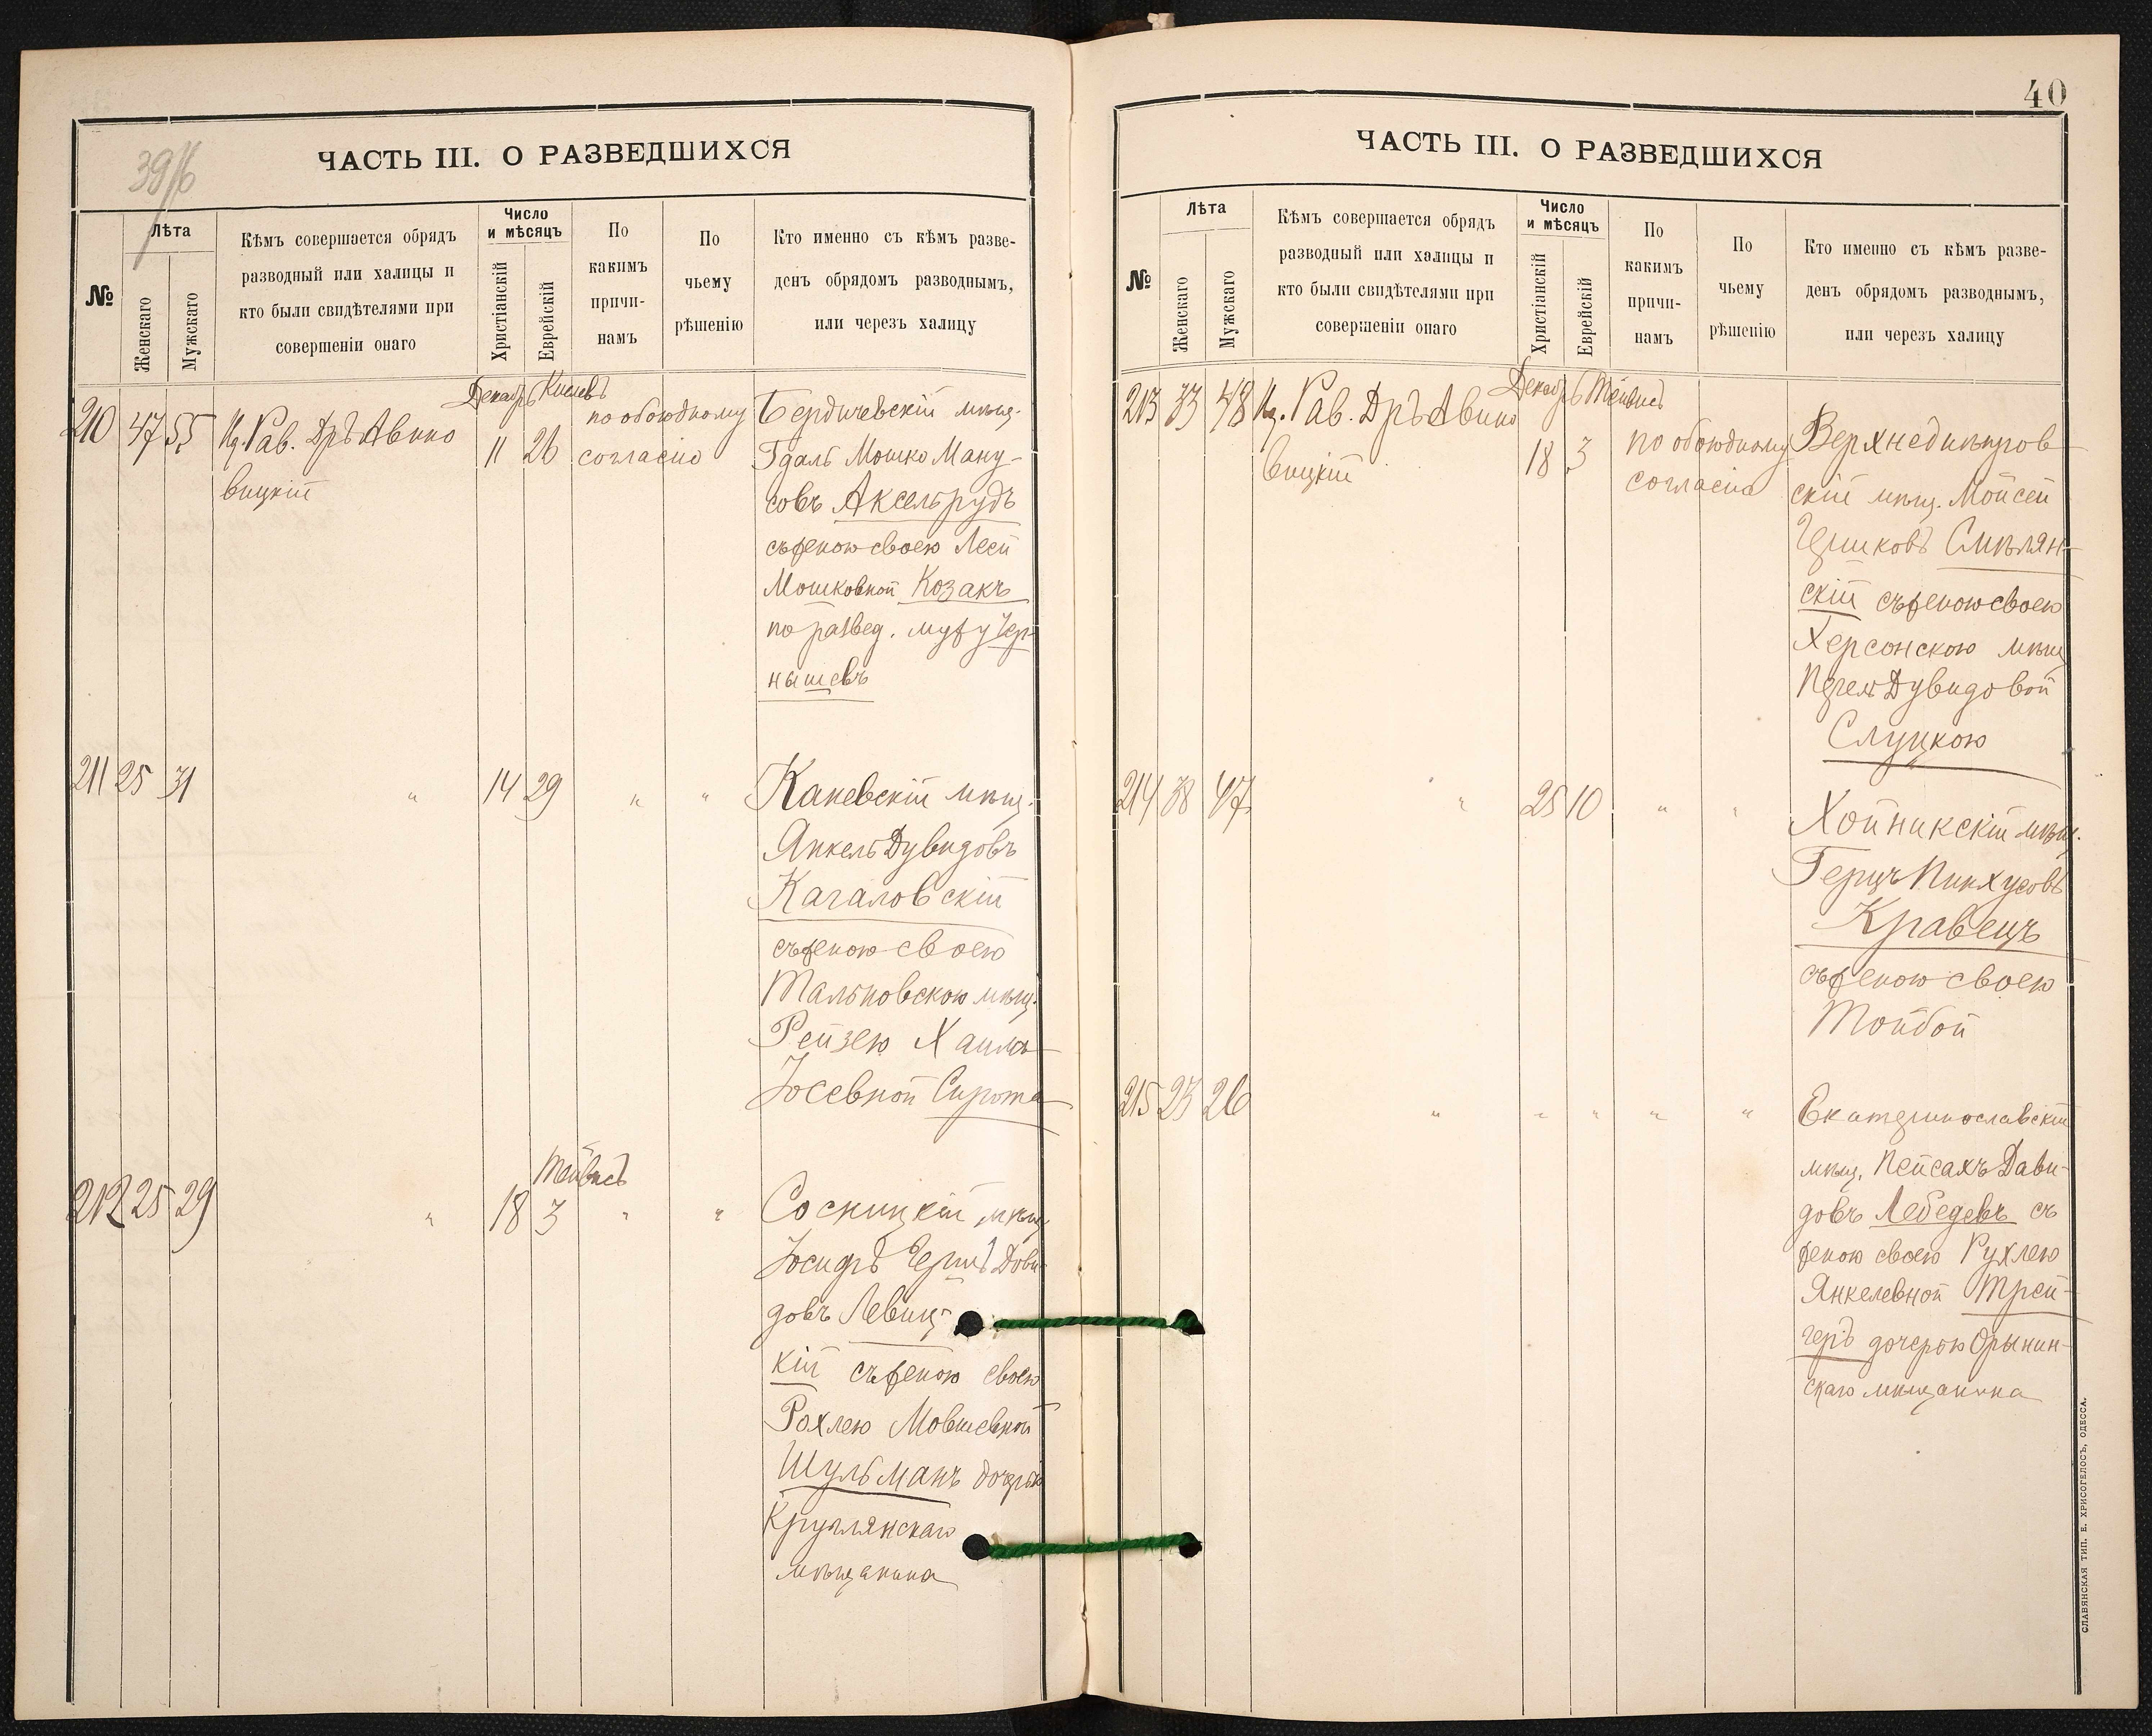 39/б
ЧАСТЬ III. О РАЗВЕДШИХСЯ
№
Лѣта
Женскаго
Мужскаго
Кѣмъ совершается обрядъ
разводный или халицы и
кто были свидѣтелями при
совершеніи онаго
Число
и мѣсяцъ
Христіанскій
Еврейскій
По
какимъ
причи-
намъ
По
чьему
рѣшенію
Кто именно съ кѣмъ разве-
денъ обрядомъ разводнымъ,
или черезъ халицу
Декабрь Кислевъ
210 47 55 Рав. Дръ Авино
вицкій
11 26
по обоюдному
согласію
Бердичевскій мѣщ.
Гдаль Мошко Ману-
совъ Аксельрудъ
съ женою своею Леей
Мошковной Козакъ
по развед. мужу Чер-
нышевъ
211 25 31 " 14 29 " "
Каневскій мѣщ.
Янкель Дувидовъ
Кагаловскій
съ женою своею
Тальновскою мѣщ.
Рейзею Хаимъ
Іосевной Сирота
Тейвисъ
212 25 29 " 18 3 " "
Сосницкій мѣщ.
Іосифъ Гершъ Дови-
довъ Левиц-
кій съ женою своею
Рохлею Мовшевной
Шульманъ дочерью
Круглянскаго
мѣщанина
40
ЧАСТЬ III. О РАЗВЕДШИХСЯ
№
Лѣта
Женскаго
Мужскаго
Кѣмъ совершается обрядъ
разводный или халицы и
кто были свидѣтелями при
совершеніи онаго
Число
и мѣсяцъ
Христіанскій
Еврейскій
По
какимъ
причи-
намъ
По
чьему
рѣшенію
Кто именно съ кѣмъ разве-
денъ обрядомъ разводнымъ,
или черезъ халицу
Декабрь Тейвисъ
213 33 48 Рав. Дръ Авино
вицкій
18 3
по обоюдному
согласію
Верхнеднѣпров
скій мѣщ. Мойсей
Гершковъ Смѣлян-
скій съ женою своею
Херсонскою мѣщ
Дувидовой
Слуцкою
214 38 47 " 25 10 " "
Хойникскій мѣщ.
Герцъ Пинхусовъ
Кравецъ
съ женою своею
Тойбой
215 23 26 " " " " "
Екатеринославскій
мѣщ. Пейсахъ Дави-
довъ Лебедевъ съ
женою своею Рухлею
Янкелевной Трей-
геръ дочерью Орынин-
скаго мѣщанина
СЛАВЯНСКАЯ ТИП. Е. ХРИСОГЕЛОСЪ, ОДЕССА.